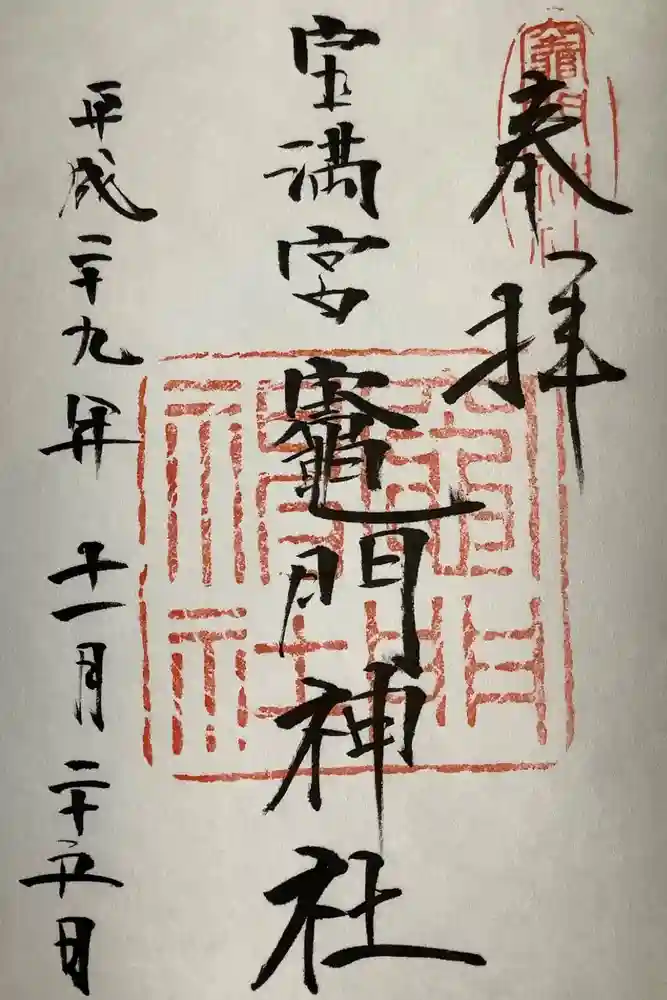 奉拝
宝満宮竈門神社
平成二十九年十一月二十五日
竈門神社
竈門神社